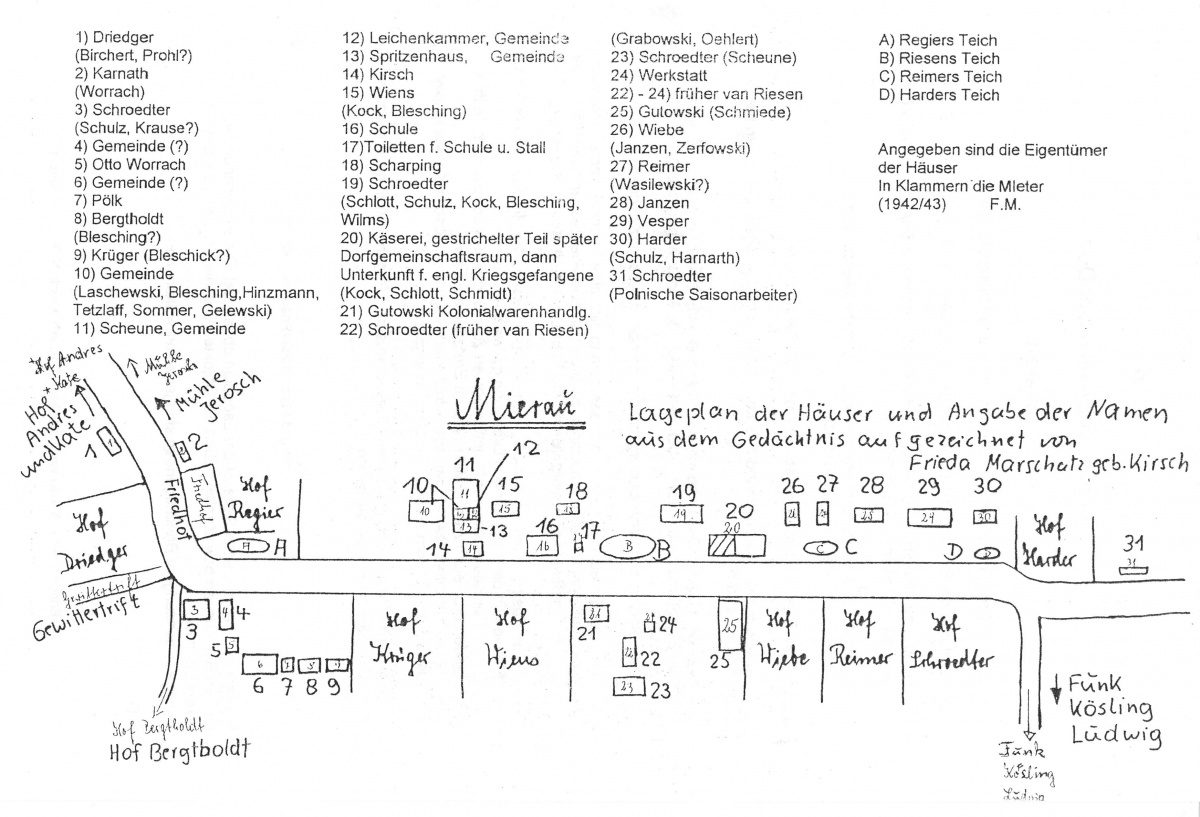 1) Driedger
(Birchert, Prohl?)
2) Karnath
(Worrach)
3) Schroedter
(Schulz, Krause?)
4) Gemeinde (?)
5) Otto Worrach
6) Gemeinde (?)
7) Pölk
8) Bergtholdt
(Blesching?)
9) Krüger (Bleschick?)
10) Gemeinde
(Laschewski, Blesching,Hinzmann,
Tetzlaff, Sommer, Gelewski)
11) Scheune, Gemeinde
12) Leichenkammer, Gemeinde
13) Spritzenhaus, Gemeinde
14) Kirsch
15) Wiens
(Kock, Blesching)
16) Schule
17)Toiletten f. Schule u. Stall
18) Scharping
19) Schroedter
(Schlott, Schulz, Kock, Blesching,
Wilms)
20) Käserei, gestrichelter Teil später
Dorfgemeinschaftsraum, dann
Unterkunft f. engl. Kriegsgefangene
(Kock, Schlott, Schmidt)
21) Gutowski Kolonialwarenhandlg.
22) Schroedter (früher van Riesen)
(Grabowski, Oehlert)
23) Schroedter (Scheune)
24) Werkstatt
22) - 24) früher van Riesen
25) Gutowski (Schmiede)
26) Wiebe
(Janzen, Zerfowski)
27) Reimer
(Wasilewski?)
28) Janzen
29) Vesper
30) Harder
(Schulz, Harnarth)
31 Schroedter
(Polnische Saisonarbeiter)
A) Regiers Teich
B) Riesens Teich
C) Reimers Teich
D) Harders Teich
Angegeben sind die Eigentümer
der Häuser
In Klammern die MIeter
(1942/43) F.M.
Mieraŭ
Lageplan der Häuser und Angabe der Namen
aus dem Gedächtnis aufgezeichnet von
Frieda Marschatz geb. Kirsch
Hof Andres
+ Kate
Mühle
Jerosch
Mühle
Jerosch
Hof
Andres
und Kate
1
2
Friedhof
Friedhof
Hof
Regier
A A
Hof
Driedger
Gewittertrift
Gewittertrift
10 10
11 11
12
13 13
14 14
15 15
16 16
17
18 18
19 19
20 20
B B
26 26
27 27
28 28
29 29
30 30
C C
D D
Hof
Harder
31 31
3 3
4 4
5 5
6 6
7 7
8 8
9 9
Hof
Krüger
Hof
Wiens
21 21
22 22
23 23
24 24
25 25
Hof
Wiebe
Hof
Reimer
Hof
Schroedter
Hof Bergtholdt
Hof Bergtboldt
Fŭnk
Kösling
Lŭdwig
Fŭnk
Kösling
Lŭdwig